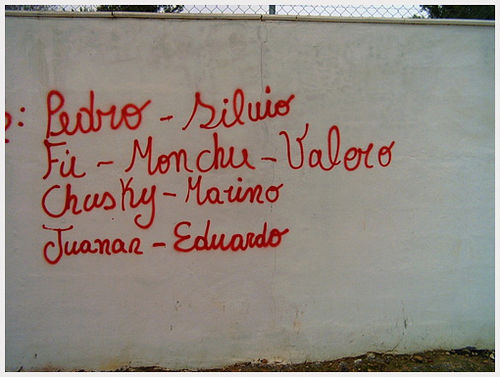 : Pedro - Silvio
Fii - Monchu - Valero
Chusky - Marino
Juanan - Eduardo